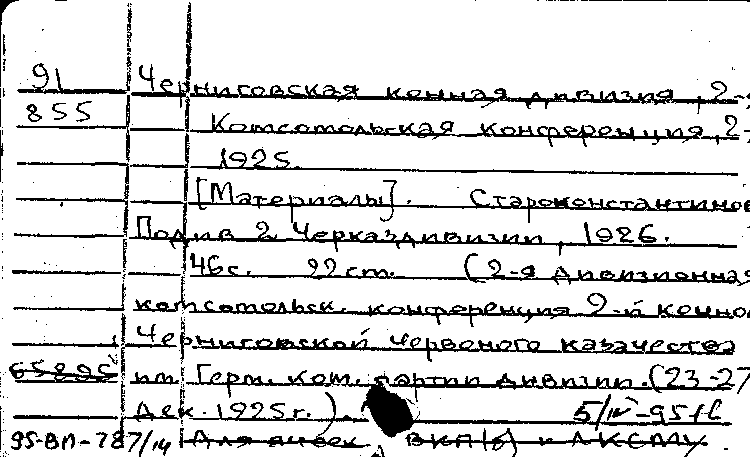 91 Черниговская конная дивизия, 2-я
855 Комсомольская конференция, 2-
1925.
[Материалы]. Староконстантинов
Подив 2 Черказдивизии, 1926.
46 с. 22 cm. (2-я дивизионная
комсомольск. конференция 2-й конно
Черниговской Червоного казачества
65895 им. Герм. ком. партии дивизии. (23-27
дек. 1925 г.).
95-ВП-787/14 Для ячеек ВКП(б) и ЛКСМУ.